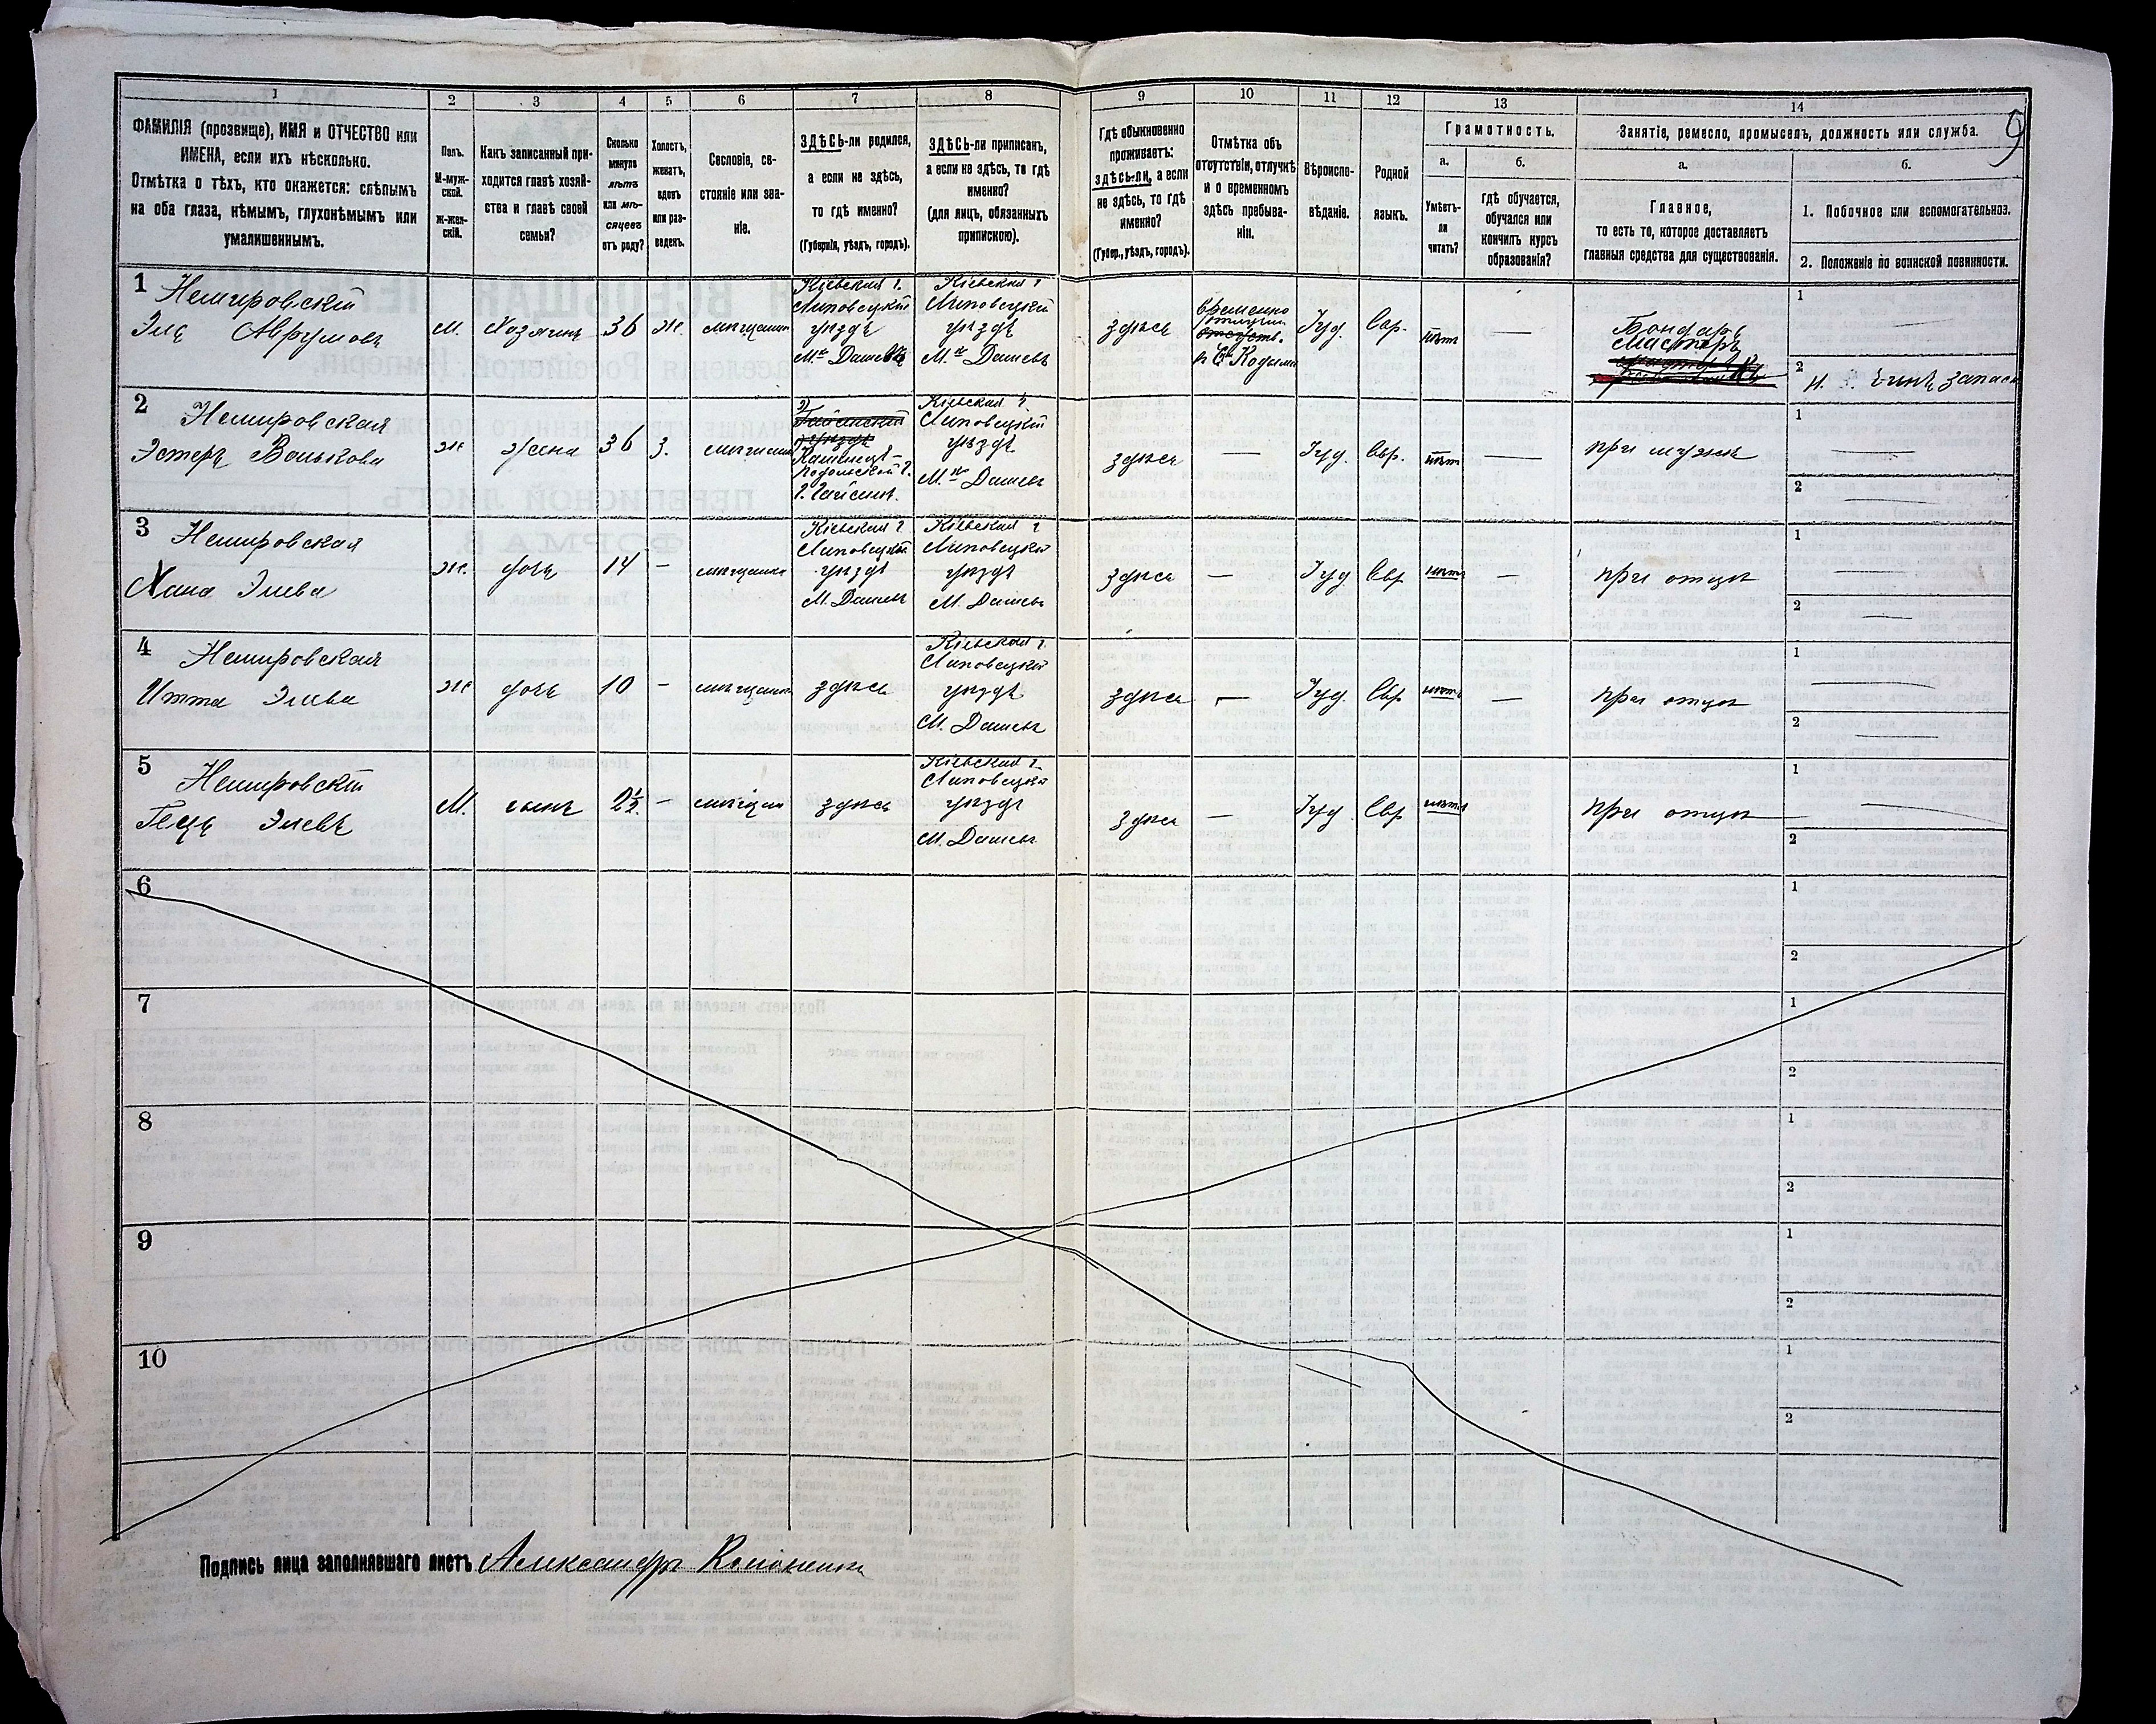 9
1
2
3
4
5
6
7
8
9
10
11
12
13
14
ФАМИЛІЯ (прозвище), ИМЯ и ОТЧЕСТВО или
ИМЕНА, если ихъ нѣсколько.
Отмѣтка о тѣхъ, кто окажется: слѣпымъ
на оба глаза, нѣмымъ, глухонѣмымъ или
умалишеннымъ.
Полъ.
М-муж-
ской.
Ж-жен-
скій.
Какъ записанный при-
ходится главѣ хозяй-
ства и главѣ своей
семьи?
Сколько
минуло
лѣтъ
или мѣ-
сяцевъ
отъ роду?
Холостъ,
женатъ,
вдовъ
или раз-
веденъ.
Сословіе, со-
стояніе или зва-
ніе.
ЗДѢСЬ-ли родился,
а если не здѣсь,
то гдѣ именно?
(Губернія, уѣздъ, городъ).
ЗДѢСЬ-ли приписанъ,
а если не здѣсь, то гдѣ
именно?
(для лицъ, обязанныхъ
припискою).
Гдѣ обыкновенно
проживаетъ:
здѣсь-ли, а если
не здѣсь, то гдѣ
именно?
(Губер., уѣздъ, городъ).
Отмѣтка объ
отсутствіи, отлучкѣ
и о временномъ
здѣсь пребыва-
ніи.
Вѣроиспо-
вѣданіе.
Родной
языкъ.
Грамотность.
а.
Умѣетъ-
ли
читать?
б.
гдѣ обучается,
обучался или
кончилъ курсъ
образованія?
Занятіе, ремесло, промыселъ, должность или служба.
а.
Главное,
то есть то, которое доставляетъ
главныя средства для существованія.
б.
1. Побочное или вспомогательное.
2. Положеніе по воинской повинности.
1
Немировскій
Эль Аврумовъ
М.
Хозяинъ
36
Ж.
мѣщанин
Кіевская г.
Липовецкій
уѣздъ
М-ко Дашевъ
Кіевская г
Липовецкій
уѣздъ
М.-ко Дашевъ
здѣсь
временно
Іуд.
Евр.
нѣтъ
—
Бондарь
Мастеръ
1
—
2
запаса
2
Немировская
Эстеръ Волькова
Ж
жена
36
З.
Гайсинскій
уѣздъ
Каменецъ-
Подольской г.
г. Гайсинъ.
Кіевская г.
Липовецкій
уѣздъ
М.-ко Дашевъ
здѣсь
—
Іуд.
Евр.
нѣт
—
при мужѣ
1
—
2
—
3
Немировская
Хана Элева
Ж.
дочь
14
—
мѣщанка
Кіевская г
Липовецкій
уѣздъ
М. Дашевъ
Кіевская г
Липовецкій
уѣздъ
М. Дашевъ
здѣсь
—
Іуд
Евр
нѣтъ
—
при отцѣ
1
—
2
—
4
Немировская
Итта Элева
Ж
дочь
10
—
мѣщанка
здѣсь
Кіевская г.
Липовецкій
уѣздъ
М. Дашевъ
здѣсь
—
Іуд.
Евр
нѣтъ
—
при отцѣ
1
—
2
—
5
Немировскій
Элевъ
М.
сынъ
2½
—
мѣщан
здѣсь
Кіевская г.
Липовецкій
уѣздъ
М. Дашевъ
здѣсь
—
Іуд
Евр
нѣтъ
при отцѣ
1
—
2
6
1
2
7
1
2
8
1
2
9
1
2
10
1
2
Подпись лица заполнявшаго листъ Александръ